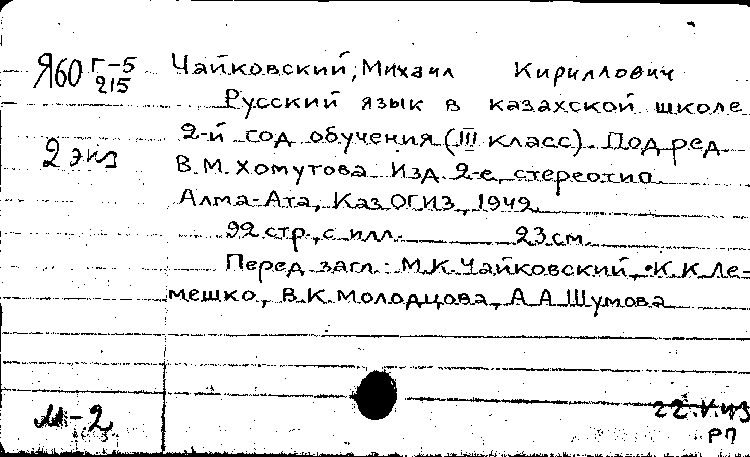 Я60 Г-5
215
Чайковский, Михаил Кириллович
Русский язык в казахской школе
2-й год обучения (III класс). Под ред.
2 экз
В. М. Хомутова. Изд. 2-е, стереотип.
Алма-Ата, КазОГИЗ, 1949.
92 стр., с илл. 23 см.
Перед загл.: М. К. Чайковский, К. К. Ле-
мешко, В. К. Молодцова, А. А. Шумова
М-2
РП